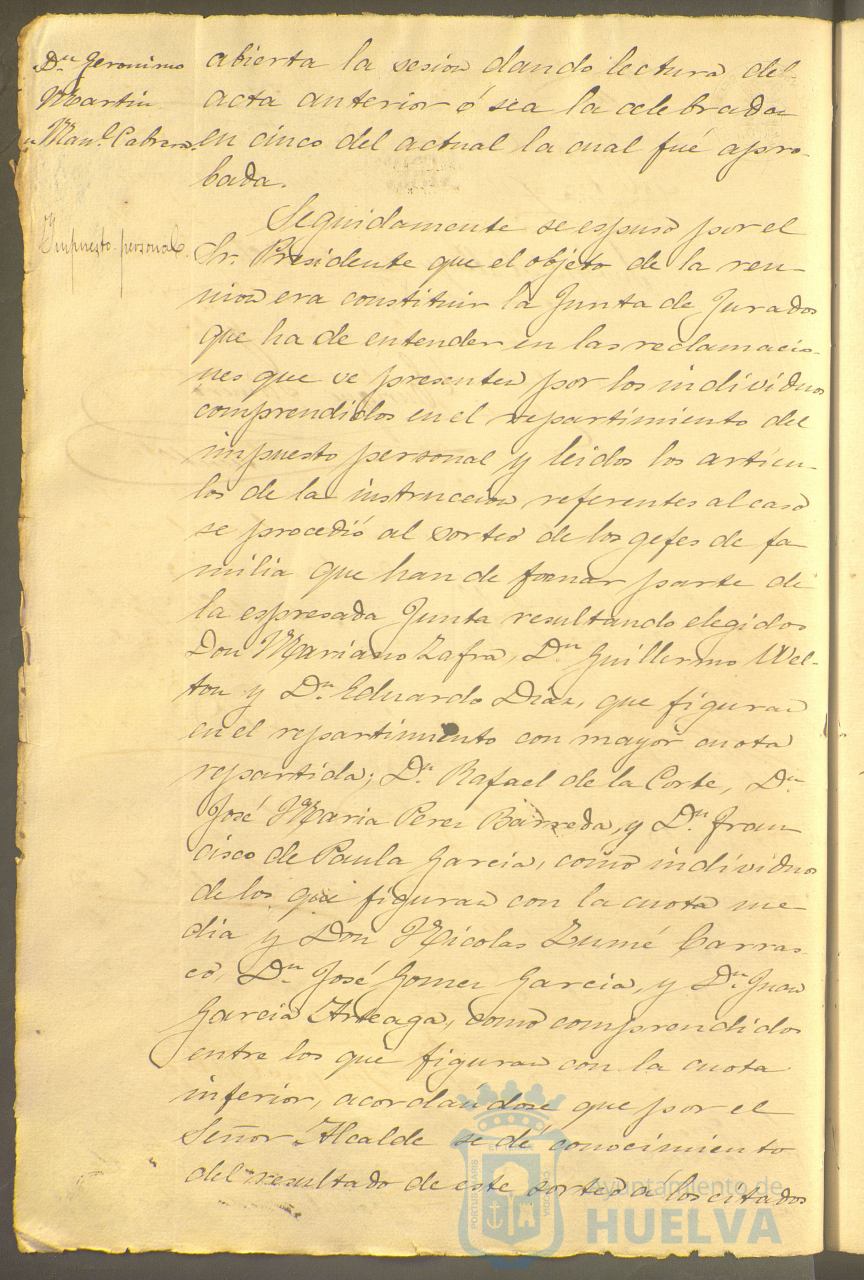 Dn Geronimo
Martin
" Manl. Cabrera.
Impuesto personal.
abierta la sesion dando lectura del
acta anterior ó sea la celebrada
en cinco del actual la cual fué apro-
bada.
Seguidamente se espuso por el
Sr. Presidente que el objeto de la reu-
nion era constituir la Junta de Jurados
que ha de entender en las reclamacio-
nes que se presenten por los individuos
comprendidos en el repartimiento del
impuesto personal y leidos los articu-
los de la instruccion referentes al caso
se procedió al sorteo de los gefes de fa-
milia que han de formar parte de
la espresada Junta resultando elegidos
Don Mariano Zafra, Dn Guillermo Wel-
ton y Dn. Eduardo Diaz, que figuran
en el repartimiento con mayor cuota
repartida; Dn. Rafael de la Corte, Dn.
José Maria Perez Barreda, y Dn. Fran-
cisco de Paula Garcia, como individuos
de los que figuran con la cuota me-
dia y Don Nicolas Zumé Carras-
co, Dn. José Gomez Garcia, y Dn. Juan
Garcia Arteaga, como comprendidos
entre los que figuran con la cuota
inferior, acordandose que por el
Señor Alcalde se dé conocimiento
del resultado de este sorteo á los citados
Ayuntamiento de
HUELVA